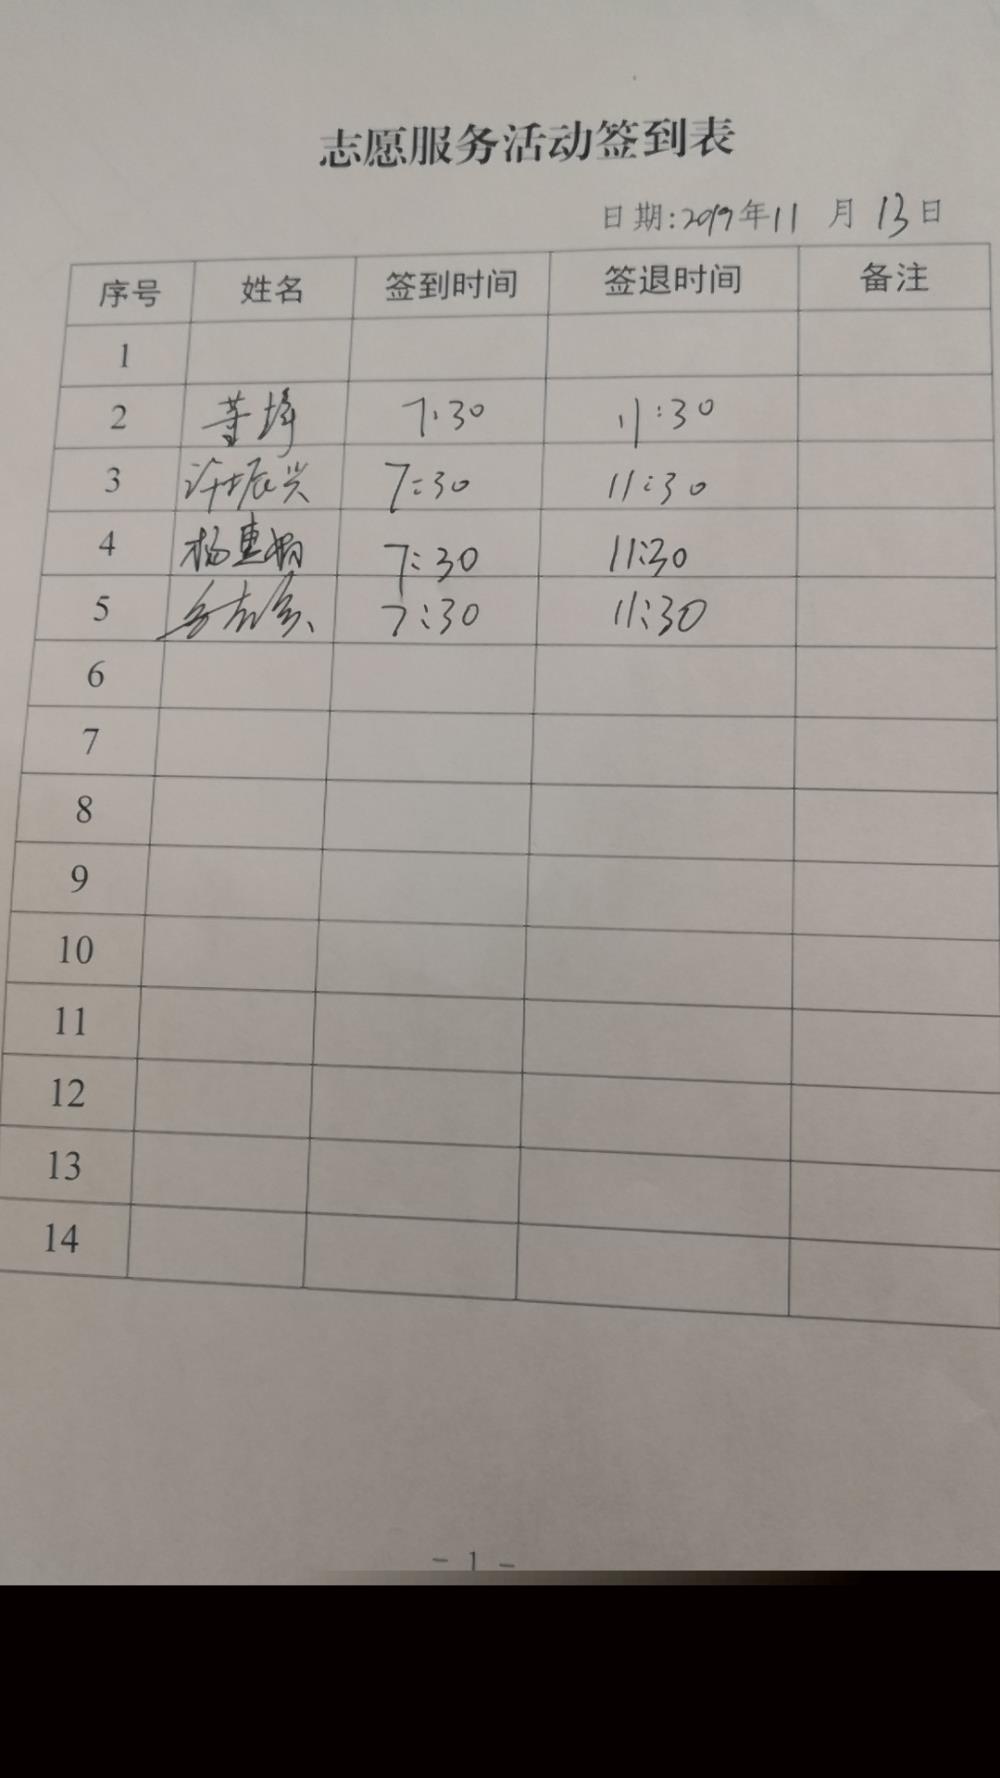 志愿服务活动签到表
日期:2019年11月13日
序号 姓名 签到时间 签退时间 备注
1
2 7:30 11:30
3 许振兴 7:30 11:30
4 杨惠 7:30 11:30
5 7:30 11:30
6
7
8
9
10
11
12
13
14
- 1 -